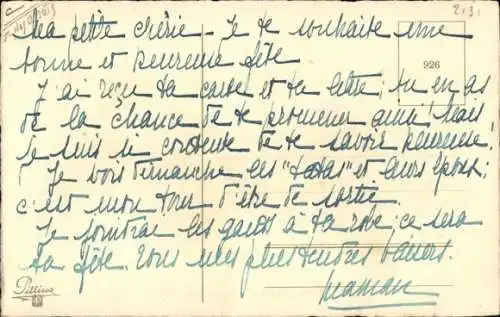 Ma petite chérie - Je te souhaite une
bonne et heureuse fête
J'ai reçu ta carte et ta lettre ; tu en as
de la chance de te promener ainsi ! Mais
je suis si contente de te savoir heureuse.
Je vois dimanche les "tatas" et leurs époux ;
c'est mon tour d'être de sortie.
Je joindrai les gants à ta robe ; ce sera
ta fête. Tous mes plus tendres baisers.
Maman
926
Pillina